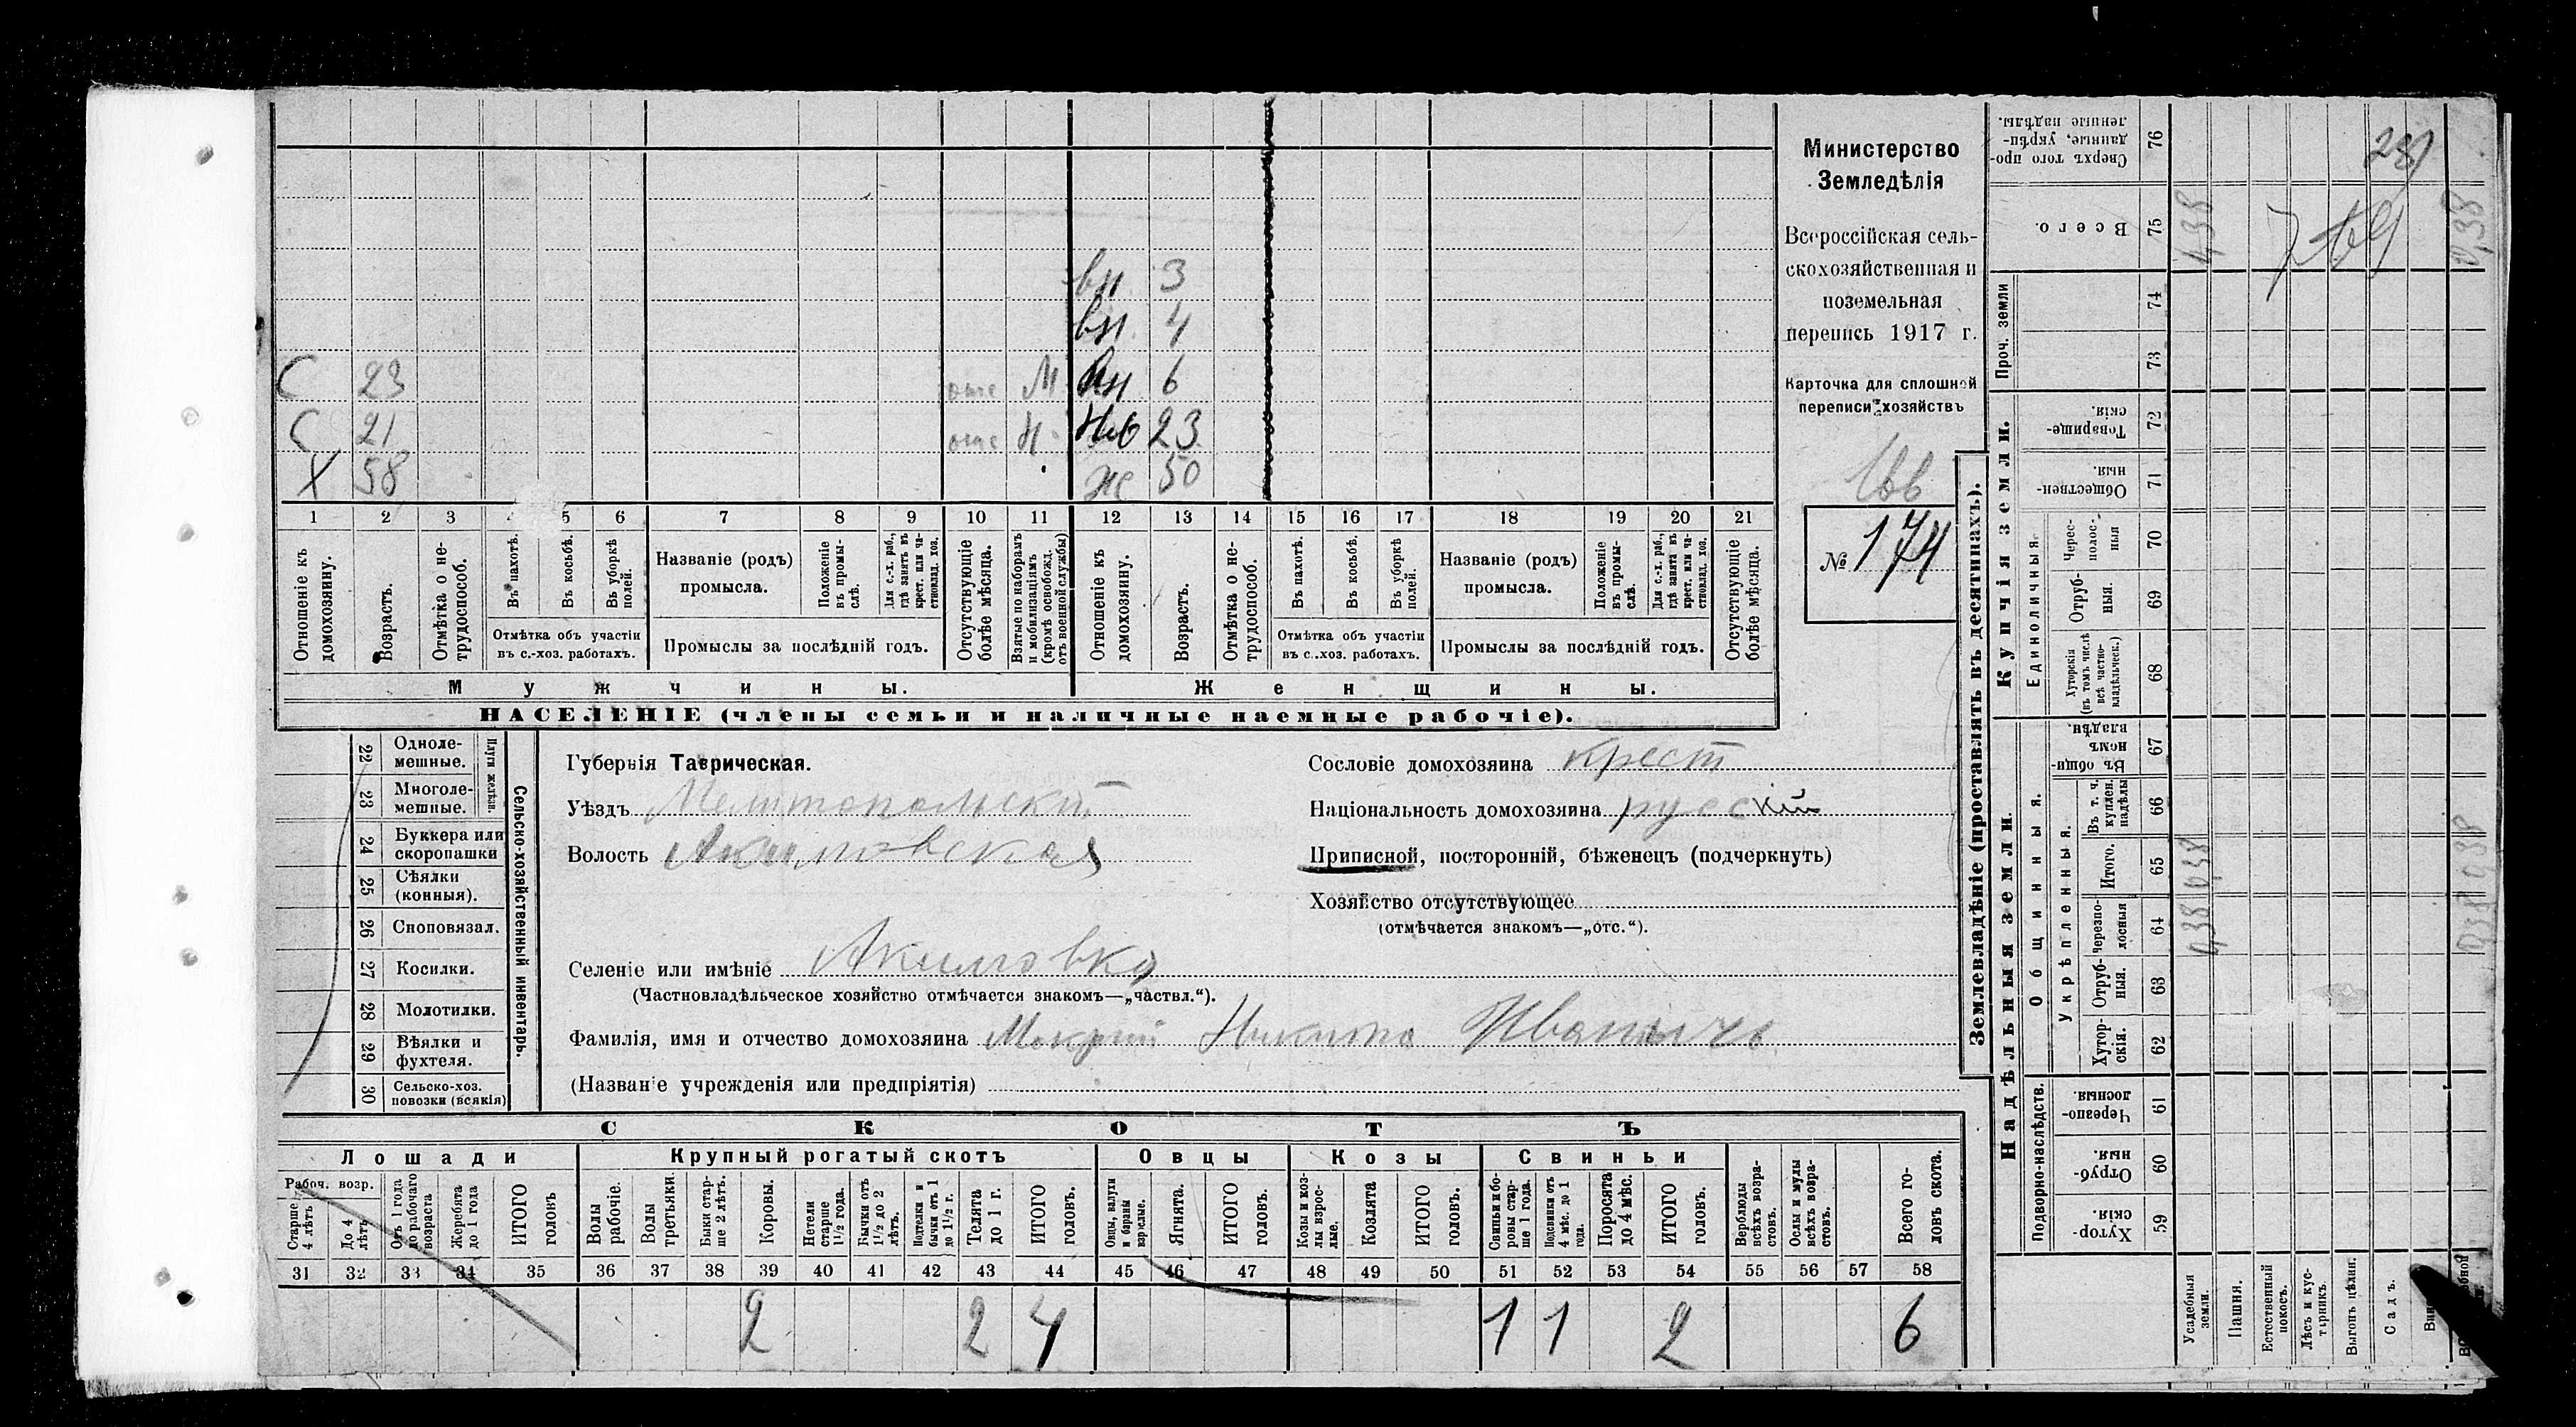 вн. 3
вн. 4
С 23 отс М вн 6
С 21 отс Н. Нев 23
Х 58 ж 50
1 2 3 4 5 6 7 8 9 10 11 12 13 14 15 16 17 18 19 20 21
Отношеніе къ домохозяину.
Возрастъ.
Отмѣтка о не-
трудоспособ.
Въ пахотѣ.
Въ косьбѣ.
Въ уборкѣ полей.
Отмѣтка объ участіи
въ с.-хоз. работахъ.
Названіе (родъ)
промысла.
Положеніе
въ промы-
слѣ.
Для с.-х. раб.,
гдѣ занятъ въ
крест. или ча-
стновлад. хоз.
Промыслы за послѣдній годъ.
Отсутствующіе
болѣе мѣсяца.
Взятые по наборамъ
и мобилизаціямъ
(кромѣ освобожд.
отъ военной службы)
Отношеніе къ
домохозяину.
Возрастъ.
Отмѣтка о не-
трудоспособ.
Въ пахотѣ.
Въ косьбѣ.
Въ уборкѣ
полей.
Отмѣтка объ участіи
въ с.-хоз. работахъ.
Названіе (родъ)
промысла.
Положеніе
въ промы-
слѣ.
Для с.-х. раб.,
гдѣ занятъ въ
крест. или ча-
стновлад. хоз.
Промыслы за послѣдній годъ.
Отсутствующіе
болѣе мѣсяца.
Мужчины.
Женщины.
НАСЕЛЕНІЕ (члены семьи и наличные наемные рабочіе).
Министерство
Земледѣлія
Всероссійская сель-
скохозяйственная и
поземельная
перепись 1917 г.
Карточка для сплошной
переписи хозяйствъ
№ 174
22 Одноле-
мешные.
23 Многоле-
мешные.
Плуги желѣзн.
24 Буккера или
скоропашки
25 Сѣялки
(конныя).
26 Сноповязал.
27 Косилки.
28 Молотилки.
29 Вѣялки и
фухтеля.
30 Сельско-хоз.
повозки (всякія)
Сельско-хозяйственный инвентарь.
Губернія Таврическая.
Уѣздъ Мелитопольскій
Волость Акимовская
Селеніе или имѣніе Акимовка
(Частновладѣльческое хозяйство отмѣчается знакомъ—„частвл.“).
Фамилія, имя и отчество домохозяина Мокрий Никита Иванычъ
(Названіе учрежденія или предпріятія)
Сословіе домохозяина крест
Національность домохозяина русскій
Приписной, посторонній, бѣженецъ (подчеркнуть)
Хозяйство отсутствующее
(отмѣчается знакомъ—„отс.“).
СКОТЪ
Лошади
Крупный рогатый скотъ
Овцы
Козы
Свиньи
Рабоч. возр.
Старше
4 лѣтъ
До 4
лѣтъ
Отъ 1 года
до рабочаго
возраста
Жеребята
до 1 года
ИТОГО
головъ
Волы
рабочіе.
Волы
третьяки.
Быки стар-
ше 2 лѣтъ.
Коровы.
Нетели
старше
1½ года.
Бычки отъ
1½ до 2
лѣтъ.
Подтелки и
бычки отъ 1
до 1½ г.
Телята
до 1 г.
ИТОГО
головъ.
Овцы, валухи
и бараны
взрослые.
Ягнята.
ИТОГО
головъ.
Козы и коз-
лы взрос-
лые.
Козлята
ИТОГО
головъ.
Свиньи и бо-
ровы стар-
ше 1 года.
Подсвинки отъ
4 мѣс. до 1
года.
Поросята
до 4 мѣс.
ИТОГО
головъ.
Верблюды
всѣхъ возра-
стовъ.
Ослы и мулы
всѣхъ возра-
стовъ.
Всего го-
ловъ скота.
31 32 33 34 35 36 37 38 39 40 41 42 43 44 45 46 47 48 49 50 51 52 53 54 55 56 57 58
2 2 4 1 1 2 6
Землевладѣніе (проставлять въ десятинахъ).
Купчія земли.
Надѣльныя земли.
Сверхъ того про-
данные, укрѣп-
ленные надѣлы. 76
Всего. 75
Проч. земли 74
73
Товарище-
скія. 72
Обществен-
ныя. 71
Единоличныя.
Черес-
полос-
ныя 70
Отруб-
ныя. 69
Хуторскія
(въ томъ числѣ
всѣ частно-
владѣльческ.) 68
Общинныя.
Въ общин-
номъ
владѣн. 67
Укрѣпленныя.
Въ т. ч.
куплен.
надѣлы 66
Итого. 65
Черезпо-
лосныя 64
Отруб-
ныя. 63
Хутор-
скія. 62
Подворно-наслѣдств.
Черезпо-
лосныя. 61
Отруб-
ныя. 60
Хутор-
скія. 59
Усадебныя
земли.
Пашня.
Естественный
покосъ.
Лѣсъ и кус-
тарникъ.
Выгонъ цѣлин.
Садъ.
0,38
0,38
0,38 0,38
0,38 0,38